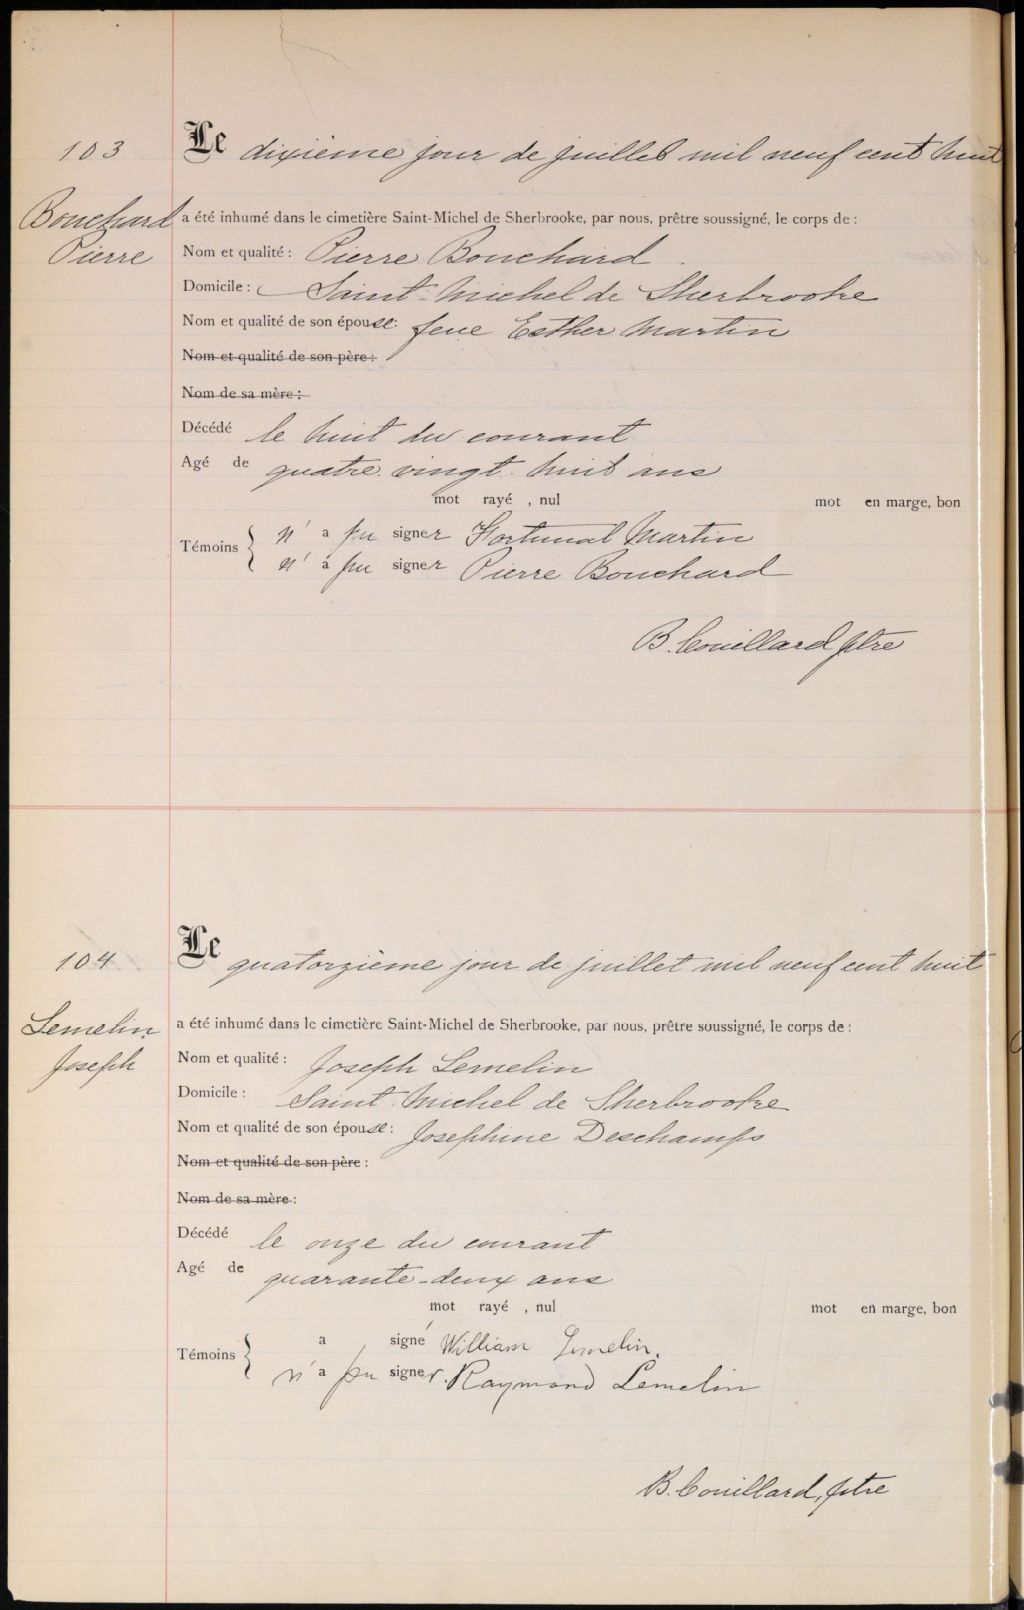 103
Le dixième jour de juillet mil neuf cent huit
Bouchard
Pierre
a été inhumé dans le cimetière Saint-Michel de Sherbrooke, par nous, prêtre soussigné, le corps de :
Nom et qualité : Pierre Bouchard
Domicile : Saint-Michel de Sherbrooke
Nom et qualité de son épouse: feue Esther Martin
Nom et qualité de son père :
Nom de sa mère :
Décédé le huit du courant
Agé de quatre-vingt-huit ans
mot rayé , nul mot en marge, bon
Témoins { n' a pu signer Fortunat Martin
n' a pu signer Pierre Bouchard
B. Couillard ptre
104
Le quatorzième jour de juillet mil neuf cent huit
Lemelin
Joseph
a été inhumé dans le cimetière Saint-Michel de Sherbrooke, par nous, prêtre soussigné, le corps de :
Nom et qualité : Joseph Lemelin
Domicile : Saint-Michel de Sherbrooke
Nom et qualité de son épouse : Josephine Deschamps
Nom et qualité de son père :
Nom de sa mère :
Décédé le onze du courant
Agé de quarante-deux ans
mot rayé , nul mot en marge, bon
Témoins { a signé William Lemelin.
n' a pu signer. Raymond Lemelin
B. Couillard, ptre